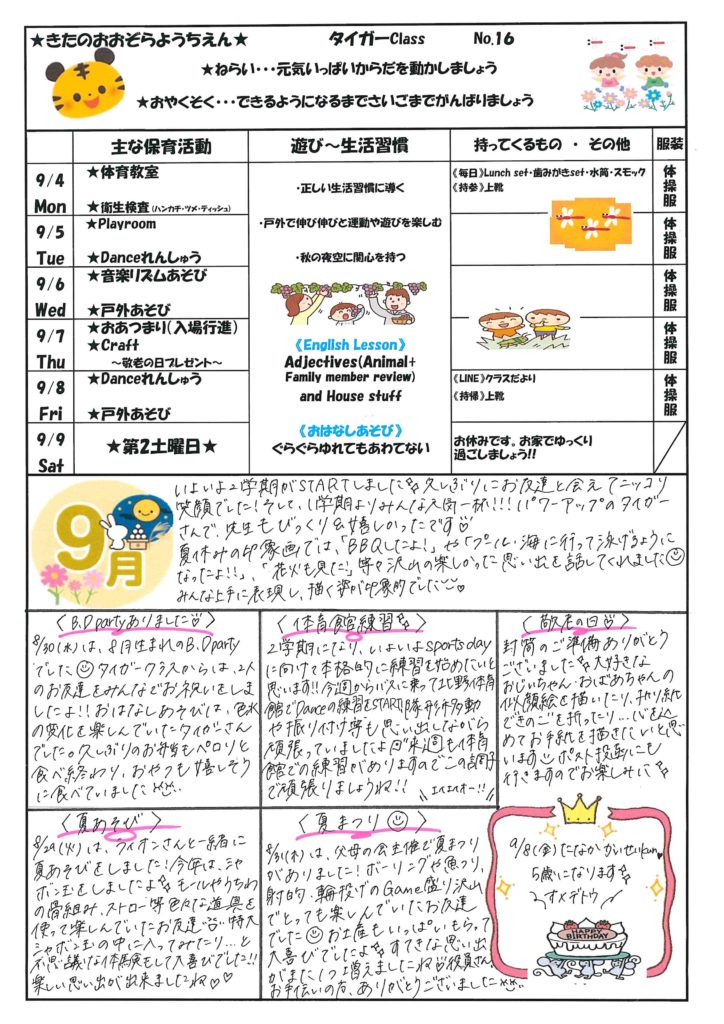 ★きたのおおぞらようちえん★ タイガーClass No.16
★ねらい・・・元気いっぱいからだを動かしましょう
★おやくそく・・・できるようになるまでさいごまでがんばりましょう
主な保育活動 遊び～生活習慣 持ってくるもの ・ その他 服装
9/4 Mon
★体育教室
★衛生検査(ハンカチ・ツメ・ティッシュ)
《毎日》Lunch set・歯みがきset・水筒・スモック
《持参》上靴
体操服
9/5 Tue
★Playroom
★Danceれんしゅう
体操服
9/6 Wed
★音楽リズムあそび
★戸外あそび
体操服
9/7 Thu
★おあつまり(入場行進)
★Craft
～敬老の日プレゼント～
体操服
9/8 Fri
★Danceれんしゅう
★戸外あそび
《LINE》クラスだより
《持帰》上靴
体操服
9/9 Sat
★第2土曜日★
お休みです。お家でゆっくり
過ごしましょう!!
・正しい生活習慣に導く
・戸外で伸び伸びと運動や遊びを楽しむ
・秋の夜空に関心を持つ
《English Lesson》
Adjectives(Animal+
Family member review)
and House stuff
《おはなしあそび》
ぐらぐらゆれてもあわてない
9月
いよいよ2学期がSTARTしました 久しぶりにお友達と会えてニッコリ
笑顔でした!そして、1学期よりみんな大きく一杯!!!パワーアップのタイガー
さんで、先生もびっくり&嬉しかったです♡
夏休みの印象画では、「BBQしたよ!」や「プール・海に行って泳げるように
なったよ!!」、「花火も見た!」等々沢山の楽しかった思い出を話してくれました
みんな上手に表現し、描く姿が印象的でした
〈B.Dpartyありました♡〉
8/30(水)は、8月生まれのB.Dparty
でした タイガークラスからは、2人
のお友達をみんなでお祝いをしま
したよ!!おはなしあそびは、色水
の変化を楽しんでいたタイガーさん
でした。久しぶりのお弁当もペロリと
食べ終わり、おやつも嬉しそう
に食べていました
〈体育館練習〉
2学期になり、いよいよsportsday
に向けて本格的に練習を始めたいと
思います!!今週からバスに乗って北野体育
館でDanceの練習をSTART!隊形移動
や振り付け等も思い出しながら
頑張っていましたよ 来週も体育
館での練習がありますのでこの調子
で頑張りましょうね!!
エイエイオー!!
〈敬老の日♡〉
封筒のご準備ありがとう
ございました 大好きな
おじいちゃん・おばあちゃんの
似顔絵を描いたり、折り紙
できのこを折ったり...心を込
めてお手紙を描きたいと思
います ポスト投函にも
行きますのでお楽しみに
〈夏あそび〉
8/29(火)は、ライオンさんと一緒に
夏あそびをしました!今年は、シャ
ボン玉をしましたよ モールやうちわ
の骨組み、ストロー等色々な道具を
使って楽しんでいたお友達 特大
シャボン玉の中に入ってみたり...と
不思議な体験をして大喜びでした!!
楽しい思い出が出来ましたね♡♡
〈夏まつり〉
8/31(木)は、父母の会主催で夏まつり
がありました!ボーリングや魚つり、
射的・輪投げのGame盛り沢山
でとっても楽しんでいたお友達
でした お土産もいっぱいもらって
大喜びでしたよ すてきな思い出
がまた1つ増えましたね♡役員さん、
お手伝いの方、ありがとうございました
9/8(金)たなか かいせいkun
5歳になります
オメデトウ
HAPPY
BIRTHDAY